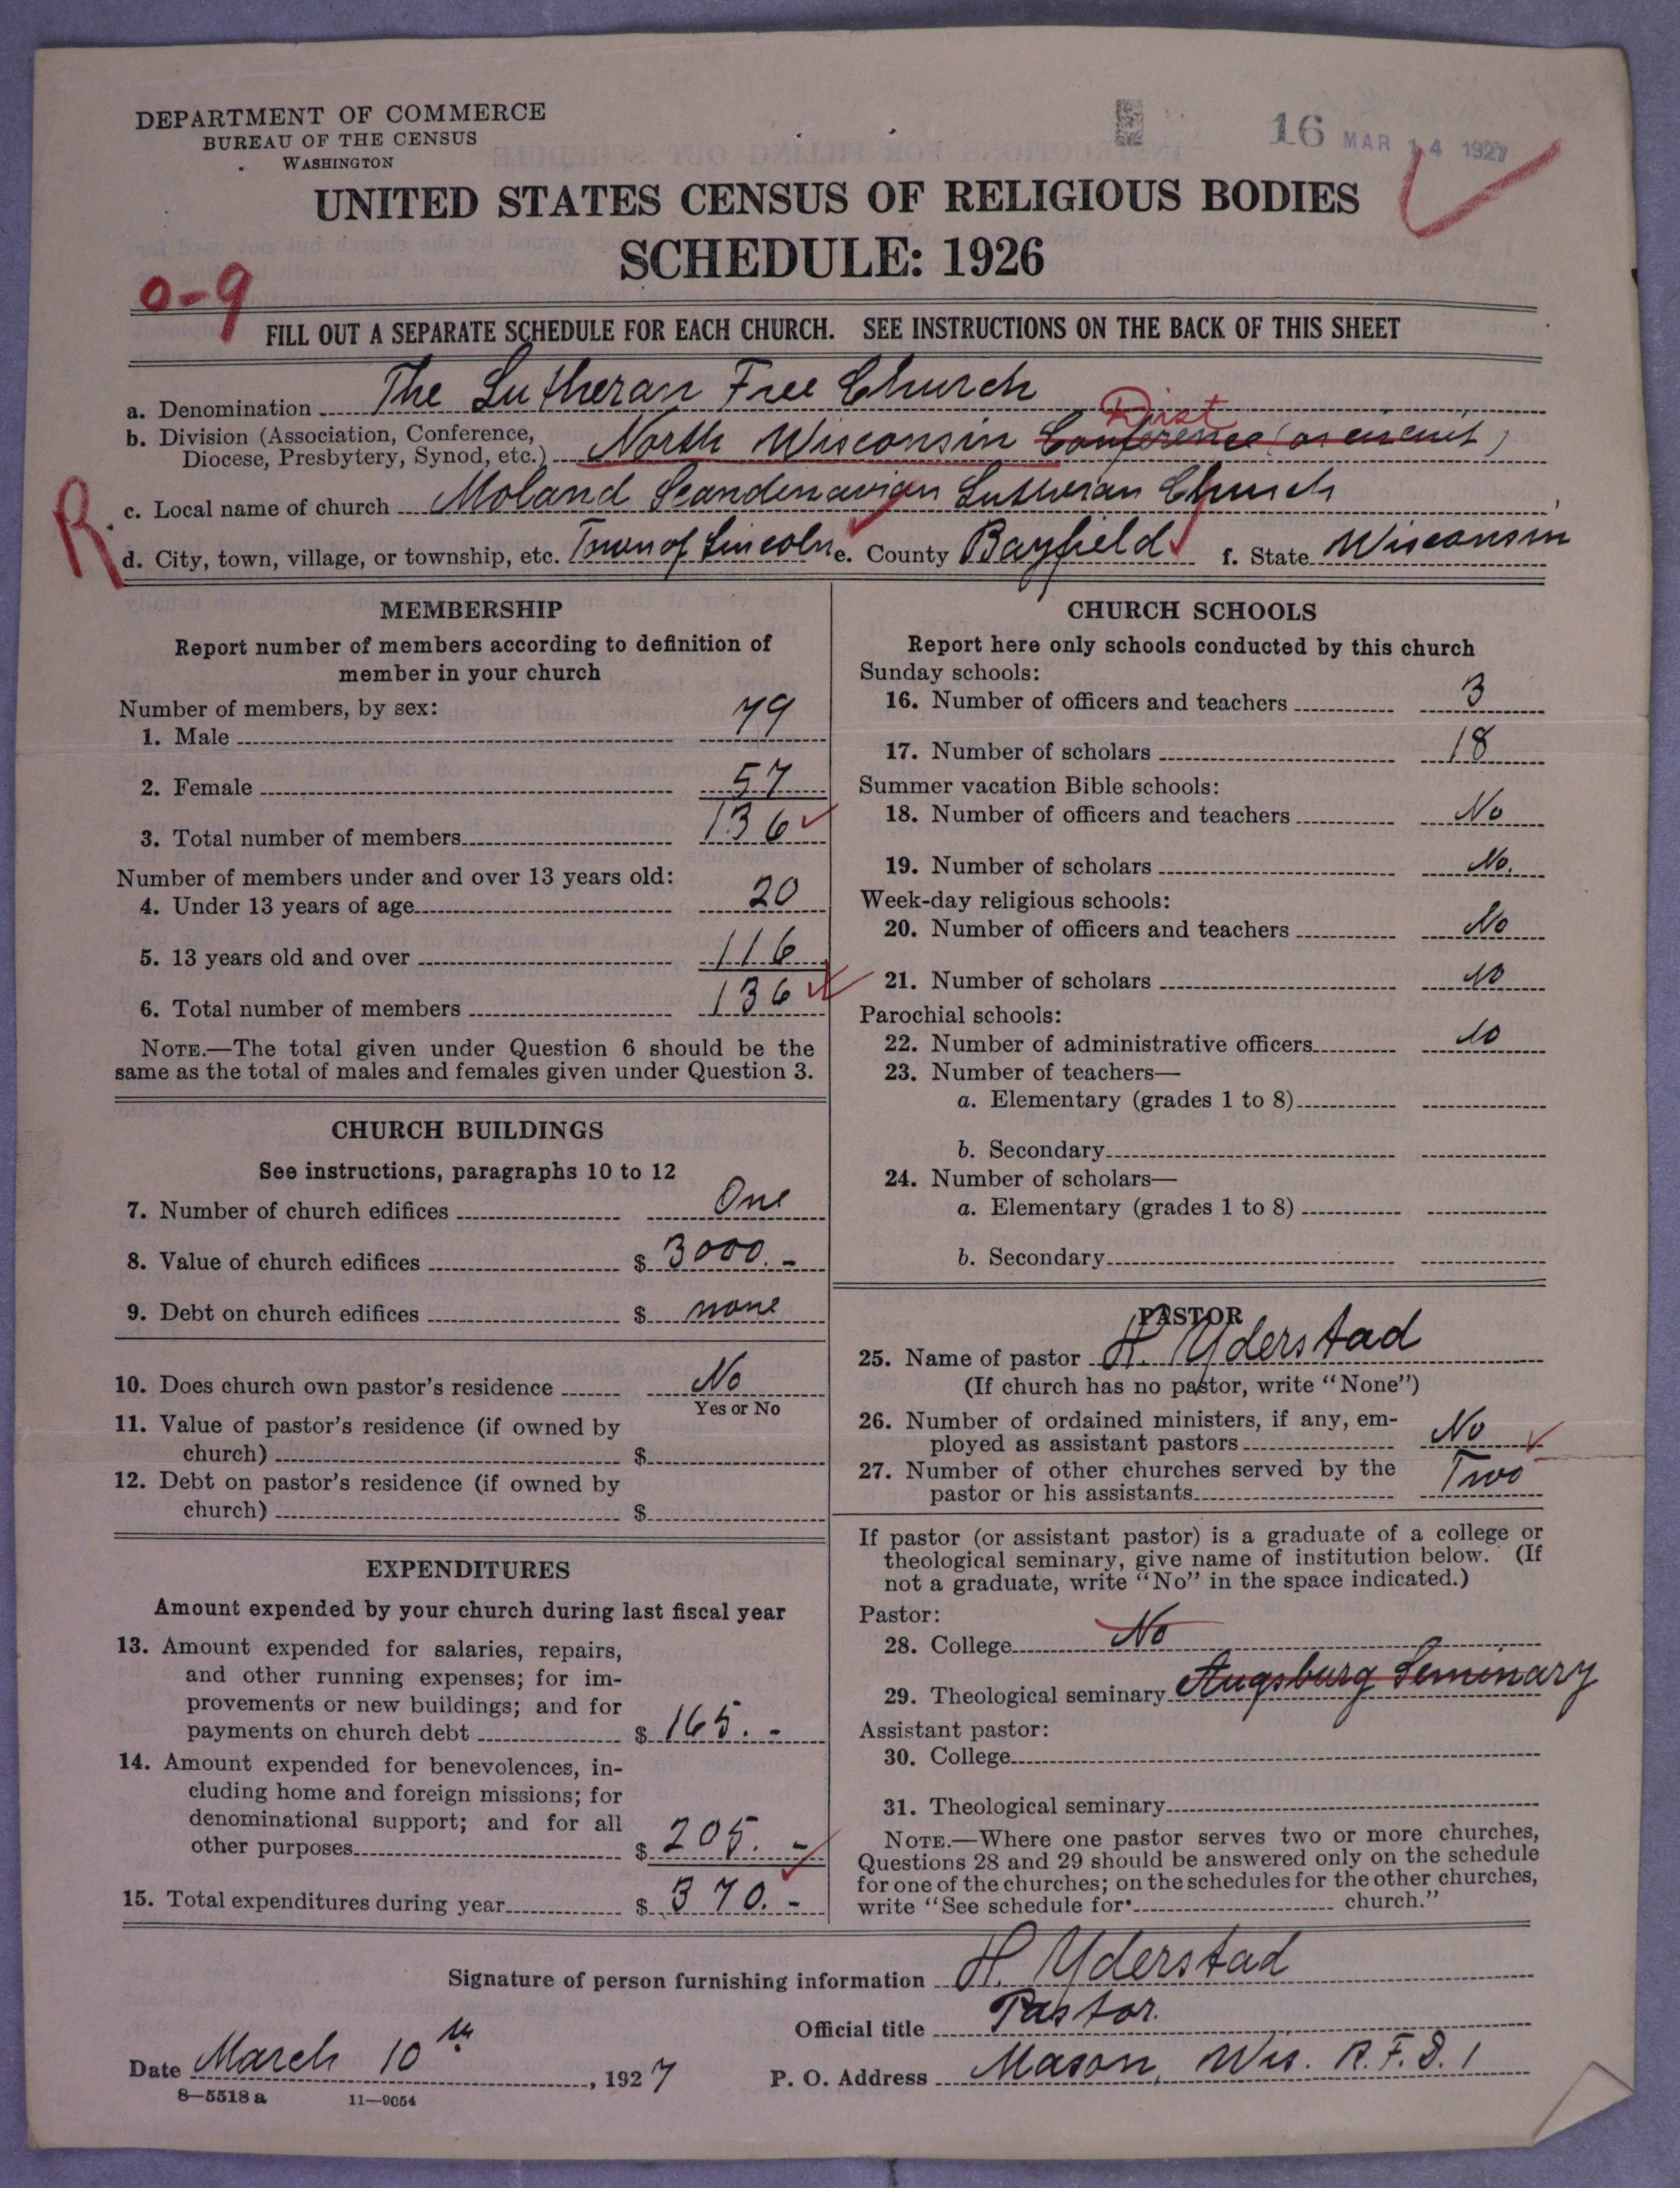 DEPARTMENT OF COMMERCE
BUREAU OF THE CENSUS
WASHINGTON
16 MAR 14 1927
UNITED STATES CENSUS OF RELIGIOUS BODIES
SCHEDULE: 1926
0-9
FILL OUT A SEPARATE SCHEDULE FOR EACH CHURCH. SEE INSTRUCTIONS ON THE BACK OF THIS SHEET
a. Denomination The Lutheran Free Church
Dist
b. Division (Association, Conference,
Diocese, Presbytery, Synod, etc.) North Wisconsin Conference (or circuit)
R. c. Local name of church Moland Scandinavian Lutheran Church
d. City, town, village, or township, etc. Town of Lincoln e. County Bayfield f. State Wisconsin
MEMBERSHIP
Report number of members according to definition of
member in your church
Number of members, by sex:
1. Male 79
2. Female 57
3. Total number of members 136
Number of members under and over 13 years old:
4. Under 13 years of age 20
5. 13 years old and over 116
6. Total number of members 136
NOTE.—The total given under Question 6 should be the
same as the total of males and females given under Question 3.
CHURCH BUILDINGS
See instructions, paragraphs 10 to 12
7. Number of church edifices One
8. Value of church edifices $ 3000.-
9. Debt on church edifices $ none
10. Does church own pastor's residence No
Yes or No
11. Value of pastor's residence (if owned by
church) $
12. Debt on pastor's residence (if owned by
church) $
EXPENDITURES
Amount expended by your church during last fiscal year
13. Amount expended for salaries, repairs,
and other running expenses; for im-
provements or new buildings; and for
payments on church debt $ 165.-
14. Amount expended for benevolences, in-
cluding home and foreign missions; for
denominational support; and for all
other purposes $ 205.-
15. Total expenditures during year $ 370.-
CHURCH SCHOOLS
Report here only schools conducted by this church
Sunday schools:
16. Number of officers and teachers 3
17. Number of scholars 18
Summer vacation Bible schools:
18. Number of officers and teachers No
19. Number of scholars No.
Week-day religious schools:
20. Number of officers and teachers No
21. Number of scholars No
Parochial schools:
22. Number of administrative officers No
23. Number of teachers—
a. Elementary (grades 1 to 8)
b. Secondary
24. Number of scholars—
a. Elementary (grades 1 to 8)
b. Secondary
PASTOR
25. Name of pastor H. Yderstad
(If church has no pastor, write "None")
26. Number of ordained ministers, if any, em-
ployed as assistant pastors No
27. Number of other churches served by the
pastor or his assistants Two
If pastor (or assistant pastor) is a graduate of a college or
theological seminary, give name of institution below. (If
not a graduate, write "No" in the space indicated.)
Pastor:
28. College No
29. Theological seminary Augsburg Seminary
Assistant pastor:
30. College
31. Theological seminary
NOTE.—Where one pastor serves two or more churches,
Questions 28 and 29 should be answered only on the schedule
for one of the churches; on the schedules for the other churches,
write "See schedule for church."
Signature of person furnishing information H. Yderstad
Official title Pastor.
Date March 10th, 1927 P. O. Address Mason, Wis. R.F.D. 1
8—5518 a 11—9054